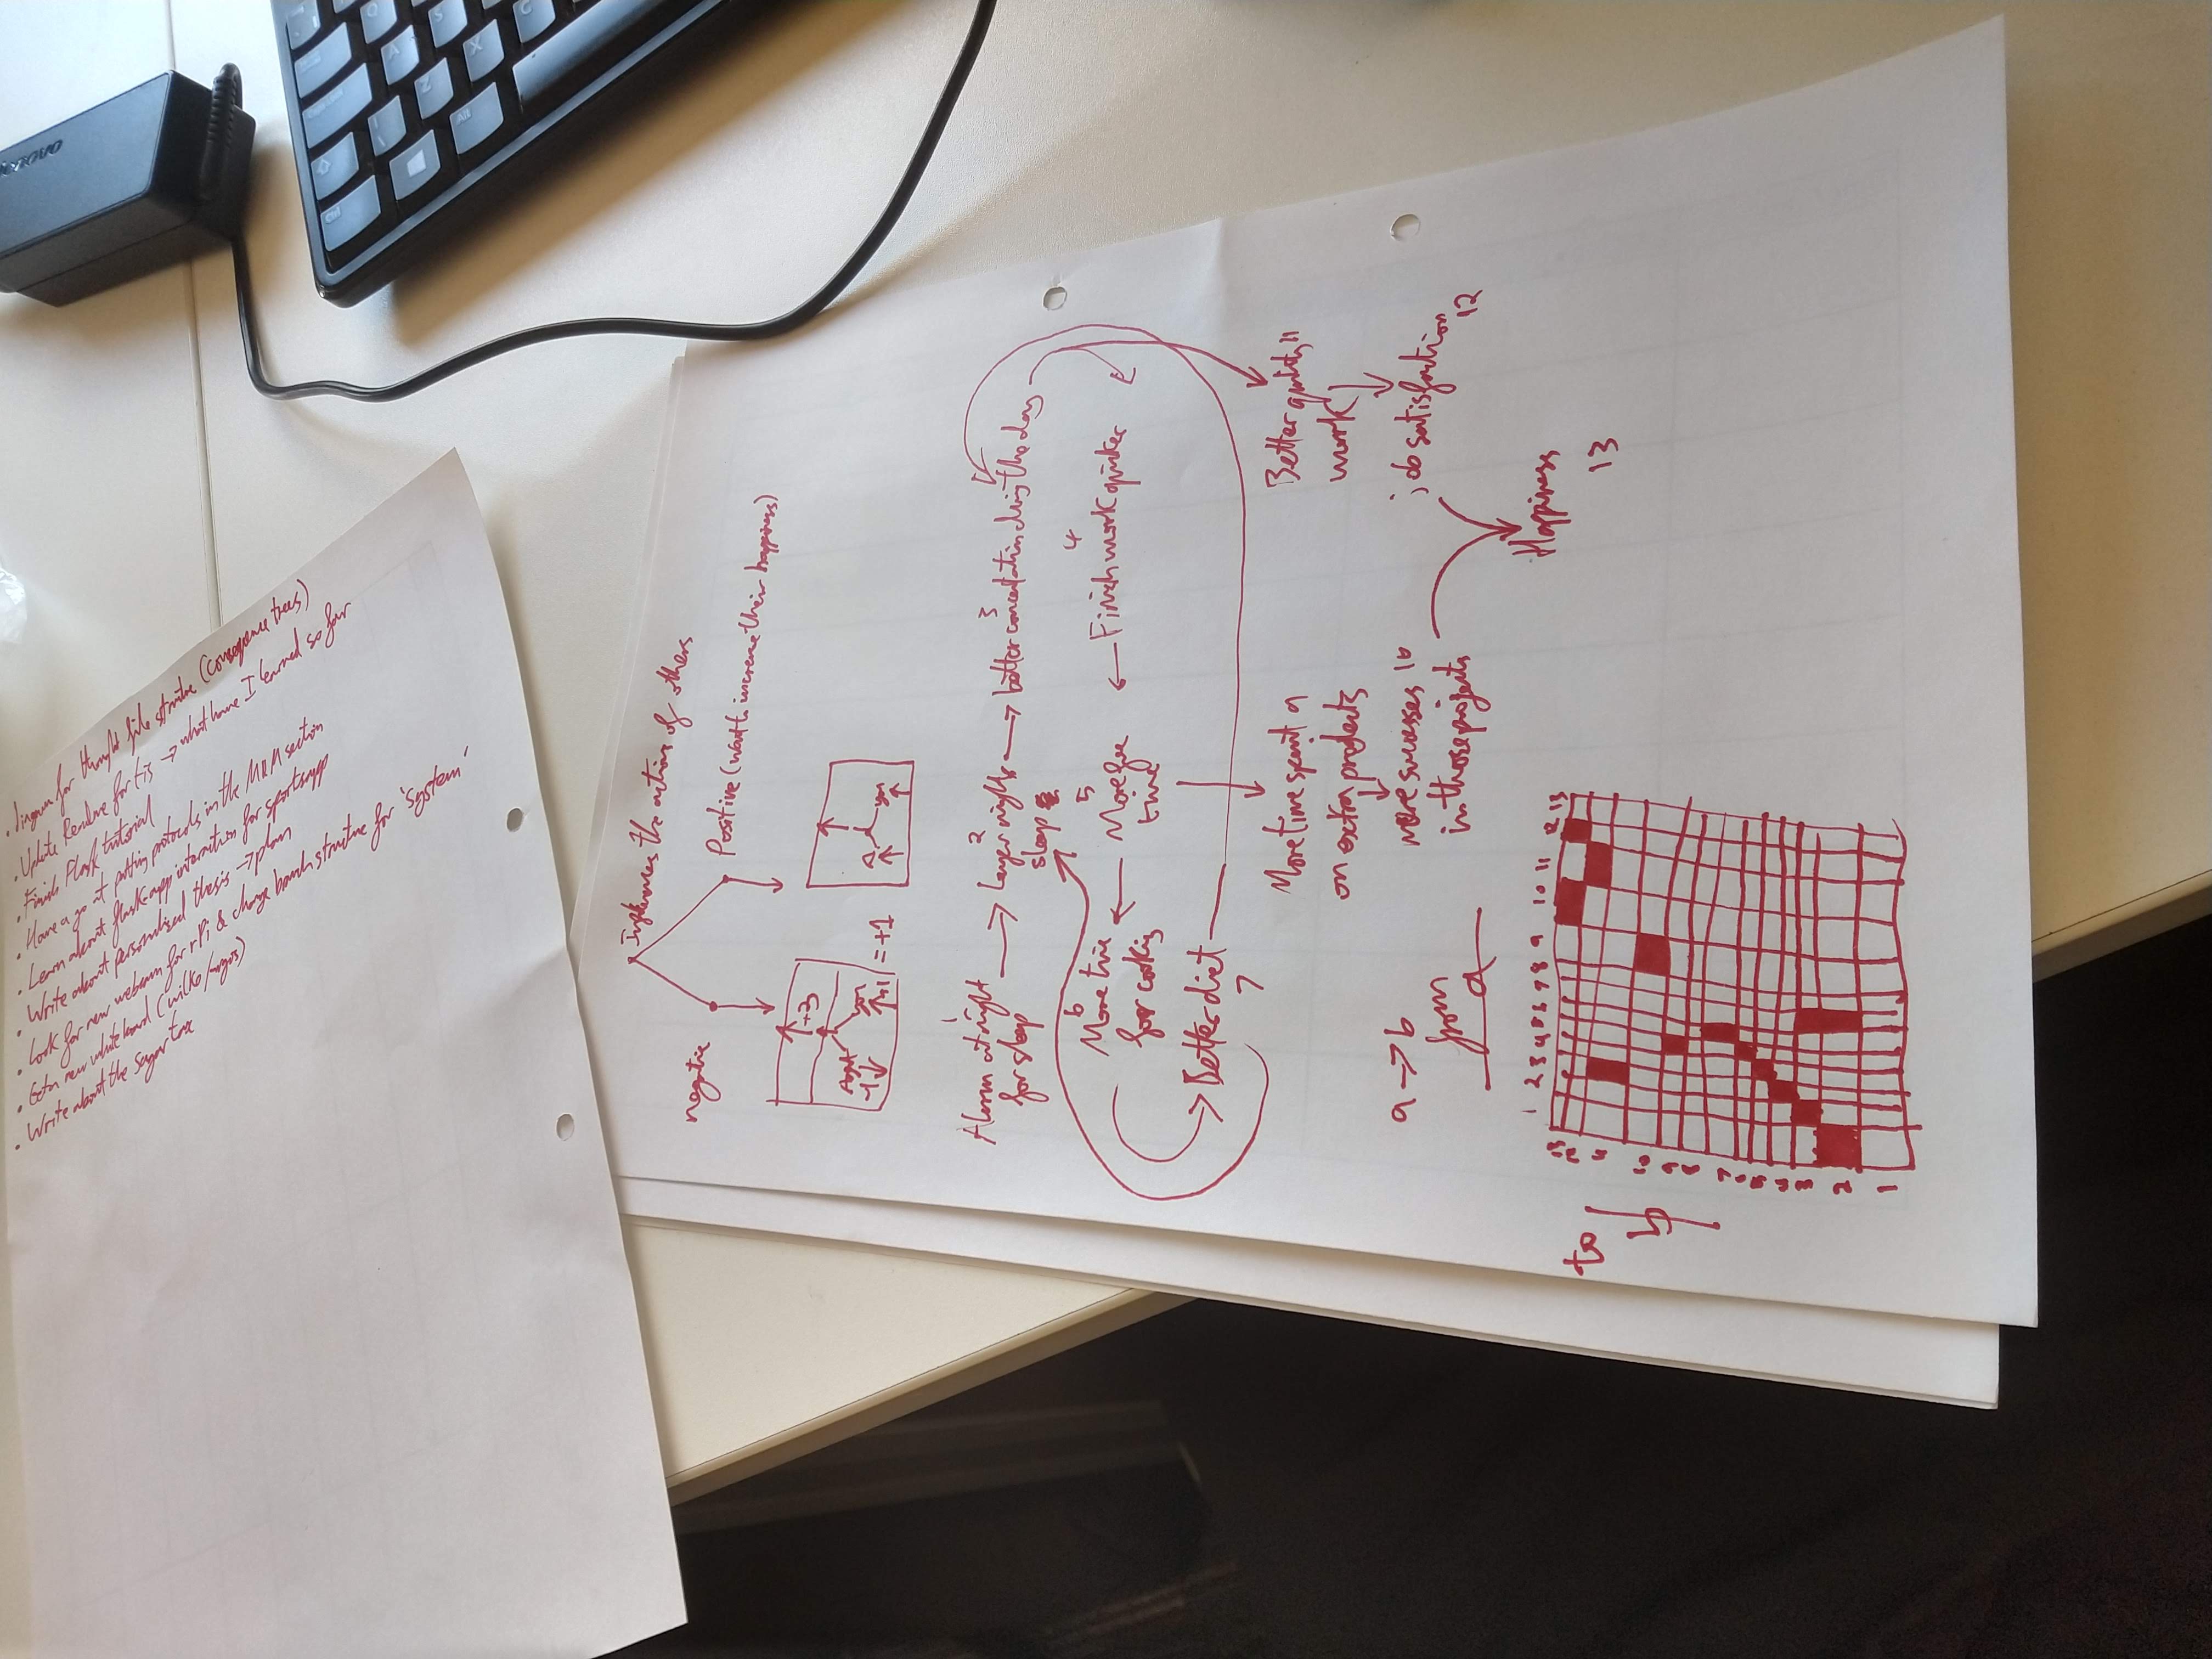 (consequence trees)
Update Readme for fis → what have I learned so far
Finish Flask tutorial
Have a go at putting protocols in the section
Learn about flask app interaction for sports app
Write about personalised thesis → plan
Look for new webcam for rPi & change branch structure for 'system'
Get a new whiteboard (wilko/argos)
Write about the sugar tree
lenovo
Influences the actions of others
negative
Positive (want to increase their happiness)
+3
Agent you
-1 +1 = +1
A you
1
Alarm at night
for sleep
2
longer nights
sleep
3
better concentration during the day
4
Finish work quicker
5
More free
time
6
More time
for cooking
Better diet
7
More time spent 9
on extra projects
more successes 10
in those projects
Better quality 11
work
job satisfaction
12
Happiness
13
a → b
from
a
to
b
1 2 3 4 5 6 7 8 9 10 11 12 13
13
12
11
10
9
8
7
6
5
4
3
2
1